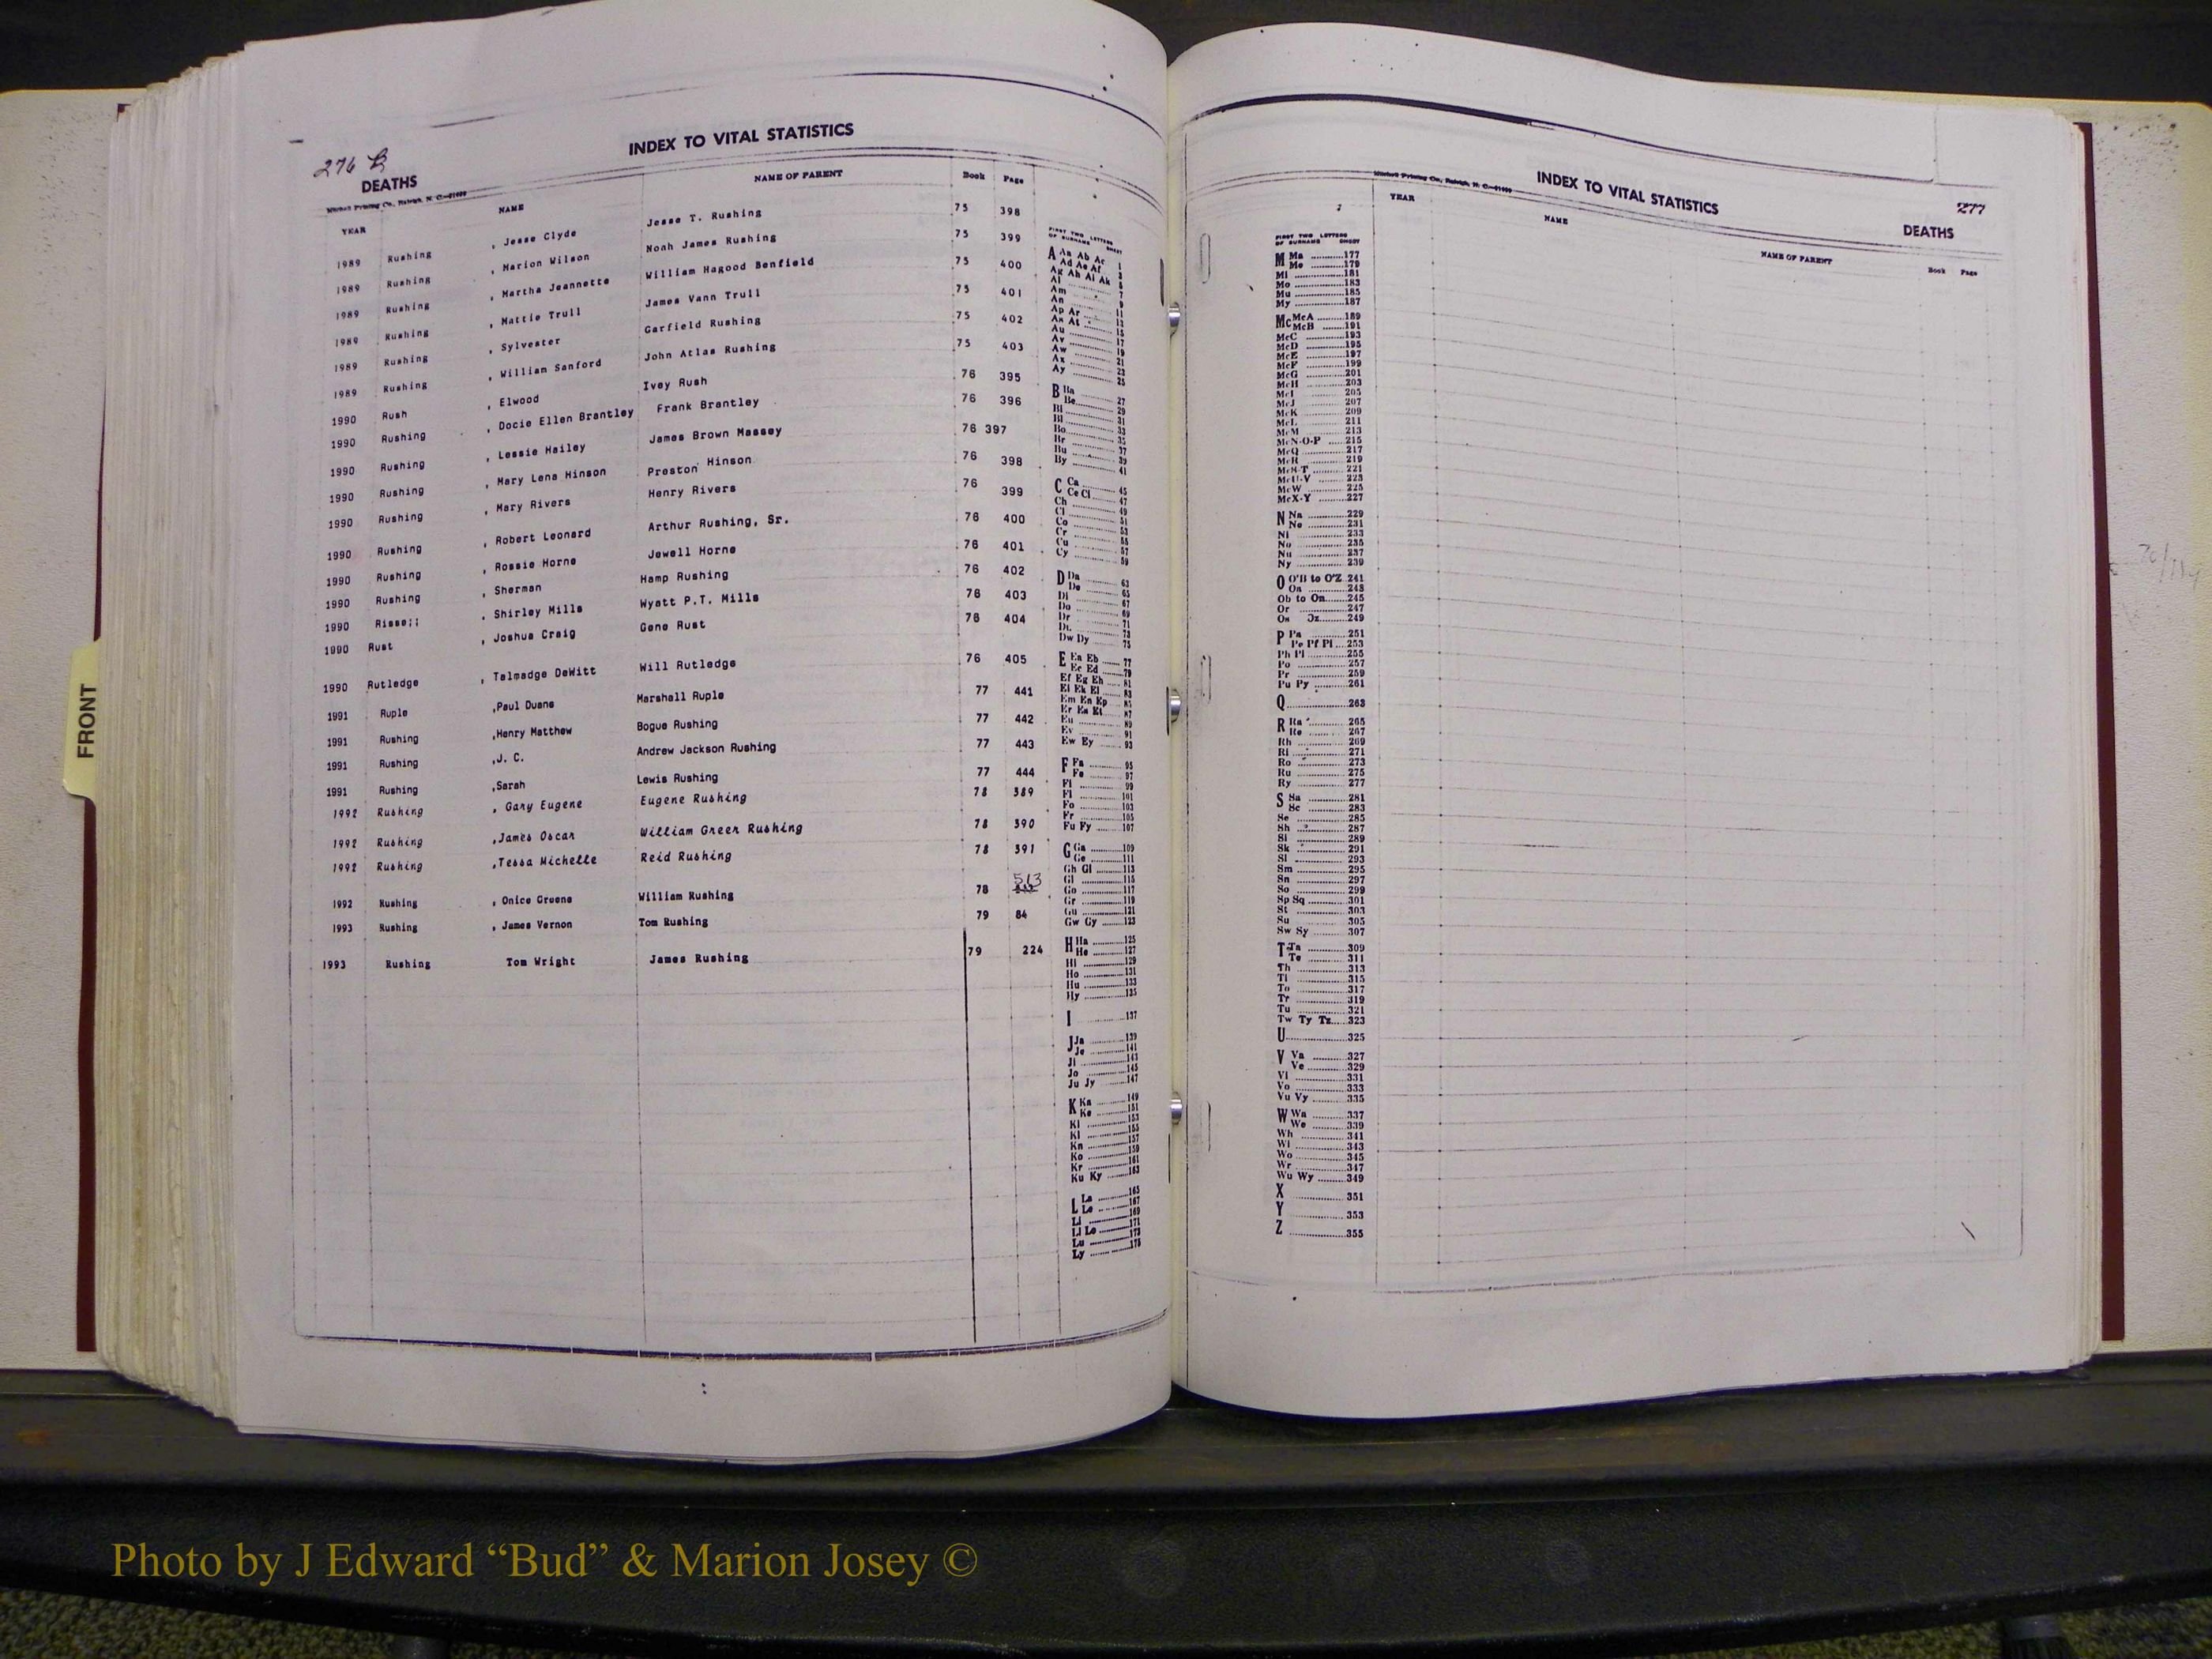 276 B
INDEX TO VITAL STATISTICS
DEATHS
YEAR NAME NAME OF PARENT Book Page
1989 Rushing , Jesse Clyde Jesse T. Rushing 75 398
1989 Rushing , Marion Wilson Noah James Rushing 75 399
1989 Rushing , Martha Jeannette William Hagood Benfield 75 400
1989 Rushing , Mattie Trull James Vann Trull 75 401
1989 Rushing , Sylvester Garfield Rushing 75 402
1989 Rushing , William Sanford John Atlas Rushing 75 403
1990 Rush , Elwood Ivey Rush 76 395
1990 Rushing , Docie Ellen Brantley Frank Brantley 76 396
1990 Rushing , Lessie Hailey James Brown Massey 76 397
1990 Rushing , Mary Lena Hinson Preston Hinson 76 398
1990 Rushing , Mary Rivers Henry Rivers 76 399
1990 Rushing , Robert Leonard Arthur Rushing, Sr. 76 400
1990 Rushing , Rossie Horne Jewell Horne 76 401
1990 Rushing , Sherman Hamp Rushing 76 402
1990 Risse;; , Shirley Mills Wyatt P.T. Mills 76 403
1990 Rust , Joshua Craig Gene Rust 76 404
1990 Rutledge , Talmadge DeWitt Will Rutledge 76 405
1991 Ruple ,Paul Duane Marshall Ruple 77 441
1991 Rushing ,Henry Matthew Bogue Rushing 77 442
1991 Rushing ,J. C. Andrew Jackson Rushing 77 443
1991 Rushing ,Sarah Lewis Rushing 77 444
1992 Rushing , Gary Eugene Eugene Rushing 78 389
1992 Rushing ,James Oscar William Green Rushing 78 390
1992 Rushing ,Tessa Michelle Reid Rushing 78 391
1992 Rushing , Onice Greene William Rushing 78 513
1993 Rushing , James Vernon Tom Rushing 79 84
1993 Rushing Tom Wright James Rushing 79 224
FIRST TWO LETTERS
OF SURNAME SHEET
A Aa Ab Ac 1
B Ba 27
Be 29
Bi 31
Bo 33
Br 35
Bu 37
By 41
C Ca 45
Ce Ci 47
Ch 49
Cl 51
Co 53
Cr 55
Cu 57
Cy 59
D Da 63
De 65
Di 67
Do 69
Dr 71
Du 73
Dw Dy 75
E Ea Eb 77
Ec Ed 79
Ef Eg Eh 81
Ei Ek El 83
Em En Ep 85
Er Es Et 87
Eu 89
Ev 91
Ew Ey 93
F Fa 95
Fe 97
Fi 99
Fl 101
Fo 103
Fr 105
Fu Fy 107
G Ga 109
Ge 111
Gh Gi 113
Gl 115
Go 117
Gr 119
Gu 121
Gw Gy 123
H Ha 125
He 127
Hi 129
Ho 131
Hu 133
Hy 135
I 137
J Ja 139
Je 141
Ji 143
Jo 145
Ju Jy 147
K Ka 149
Ke 151
Ki 153
Kl 155
Kn 157
Ko 159
Kr 161
Ku Ky 163
L La 165
Le 167
Li 169
Ll Lo 171
Lu 173
Ly 175
INDEX TO VITAL STATISTICS
277
DEATHS
YEAR NAME NAME OF PARENT Book Page
FIRST TWO LETTERS
OF SURNAME SHEET
M Ma 177
Me 179
Mi 181
Mo 183
Mu 185
My 187
Mc McA 189
McB 191
McC 193
McD 195
McE 197
McF 199
McG 201
McH 203
McI 205
McJ 207
McK 209
McL 211
McM 213
McN-O-P 215
McQ 217
McR 219
McS-T 221
McU-V 223
McW 225
McX-Y 227
N Na 229
Ne 231
Ni 233
No 235
Nu 237
Ny 239
O O'B to O'Z 241
Oa 243
Ob to On 245
Or 247
Os Oz 249
P Pa 251
Pe Pf Pi 253
Ph Pl 255
Po 257
Pr 259
Pu Py 261
Q 263
R Ra 265
Re 267
Rh 269
Ri 271
Ro 273
Ru 275
Ry 277
S Sa 281
Sc 283
Se 285
Sh 287
Si 289
Sk 291
Sl 293
Sm 295
Sn 297
So 299
Sp Sq 301
St 303
Su 305
Sw Sy 307
T Ta 309
Te 311
Th 313
Ti 315
To 317
Tr 319
Tu 321
Tw Ty Tz 323
U 325
V Va 327
Ve 329
Vi 331
Vo 333
Vu Vy 335
W Wa 337
We 339
Wh 341
Wi 343
Wo 345
Wr 347
Wu Wy 349
X 351
Y 353
Z 355
FRONT
Photo by J Edward “Bud” & Marion Josey ©